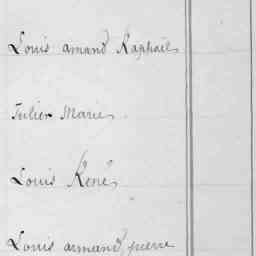 Louis amand Raphaël
Julien Marie
Louis René
Louis armand, pierre